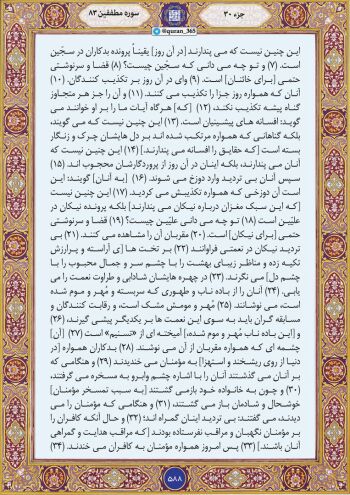 جزء ۳۰
سوره مطففین ۸۳
@quran_365
این چنین نیست که می پندارند [در آن روز] یقیناً پرونده بدکاران در سجّین
است. (۷) تو چه می دانی که سجّین چیست؟ (۸) قضا و سرنوشتی
حتمی [برای خائنان] است. (۹) وای در آن روز بر تکذیب کنندگان. (۱۰)
آنان که همواره روز جزا را تکذیب می کنند. (۱۱) و آن را جز هر متجاوز
گناه پیشه تکذیب نکند، (۱۲) [که] هرگاه آیات ما را بر او خوانند می
گوید: افسانه های پیشینیان است. (۱۳) این چنین نیست که می گویند،
بلکه گناهانی که همواره مرتکب شده اند بر دل هایشان چرک و زنگار
بسته است [که حقایق را افسانه می پندارند.] (۱۴) این چنین نیست که
آنان می پندارند، بلکه اینان در آن روز از پروردگارشان محجوب اند. (۱۵)
سپس آنان بی تردید وارد دوزخ می شوند. (۱۶) [به آنان] گویند: این
است آن دوزخی که همواره تکذیبش می کردید. (۱۷) این چنین نیست
[که این سبک مغزان درباره نیکان می پندارند] بلکه پرونده نیکان در
علیّین است (۱۸) تو چه می دانی علیّین چیست؟ (۱۹) قضا و سرنوشتی
حتمی [برای نیکان] است. (۲۰) مقربان آن را مشاهده می کنند. (۲۱) بی
تردید نیکان در نعمتی فراوانند. (۲۲) بر تخت ها [ی آراسته و پرارزش
تکیه زده و مناظر زیبای بهشت را با چشم سر و جمال محبوب را با
چشم دل] می نگرند. (۲۳) در چهره هایشان شادابی و طراوت نعمت را می
یابی. (۲۴) آنان را از باده ناب و طهوری که سربسته و مُهر و موم شده
است، می نوشانند. (۲۵) مُهر و مومش مشک است، و رقابت کنندگان و
مسابقه گران باید به سوی این نعمت ها بر یکدیگر پیشی گیرند، (۲۶)
و [این باده ناب مُهر و موم شده،] آمیخته ای از «تسنیم» است. (۲۷) [آن]
چشمه ای که همواره مقربان از آن می نوشند. (۲۸) بدکاران همواره [در
دنیا از روی ریشخند و استهزا] به مؤمنان می خندیدند (۲۹) و هنگامی که
بر آنان می گذشتند آنان را با اشاره چشم وابرو به مسخره می گرفتند،
(۳۰) و چون به خانواده خود بازمی گشتند [به سبب تمسخر مؤمنان]
خوشحال و شادمان باز می گشتند، (۳۱) و هنگامی که مؤمنان را می
دیدند، می گفتند: بی تردید اینان گمراه اند؛ (۳۲) و حال آنکه کافران را
بر مؤمنان نگهبان و مراقب نفرستاده بودند [که مراقب هدایت و گمراهی
آنان باشند.] (۳۳) پس امروز همواره مؤمنان به کافران می خندند. (۳۴)
۵۸۸